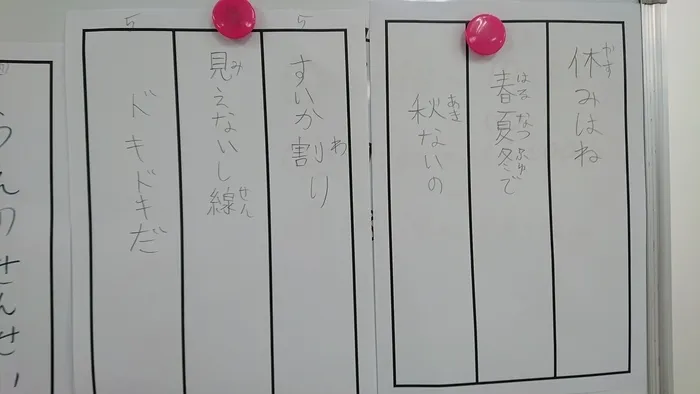 休みはね
春夏冬で
秋ないの
すいか割り
見えないし線
ドキドキだ